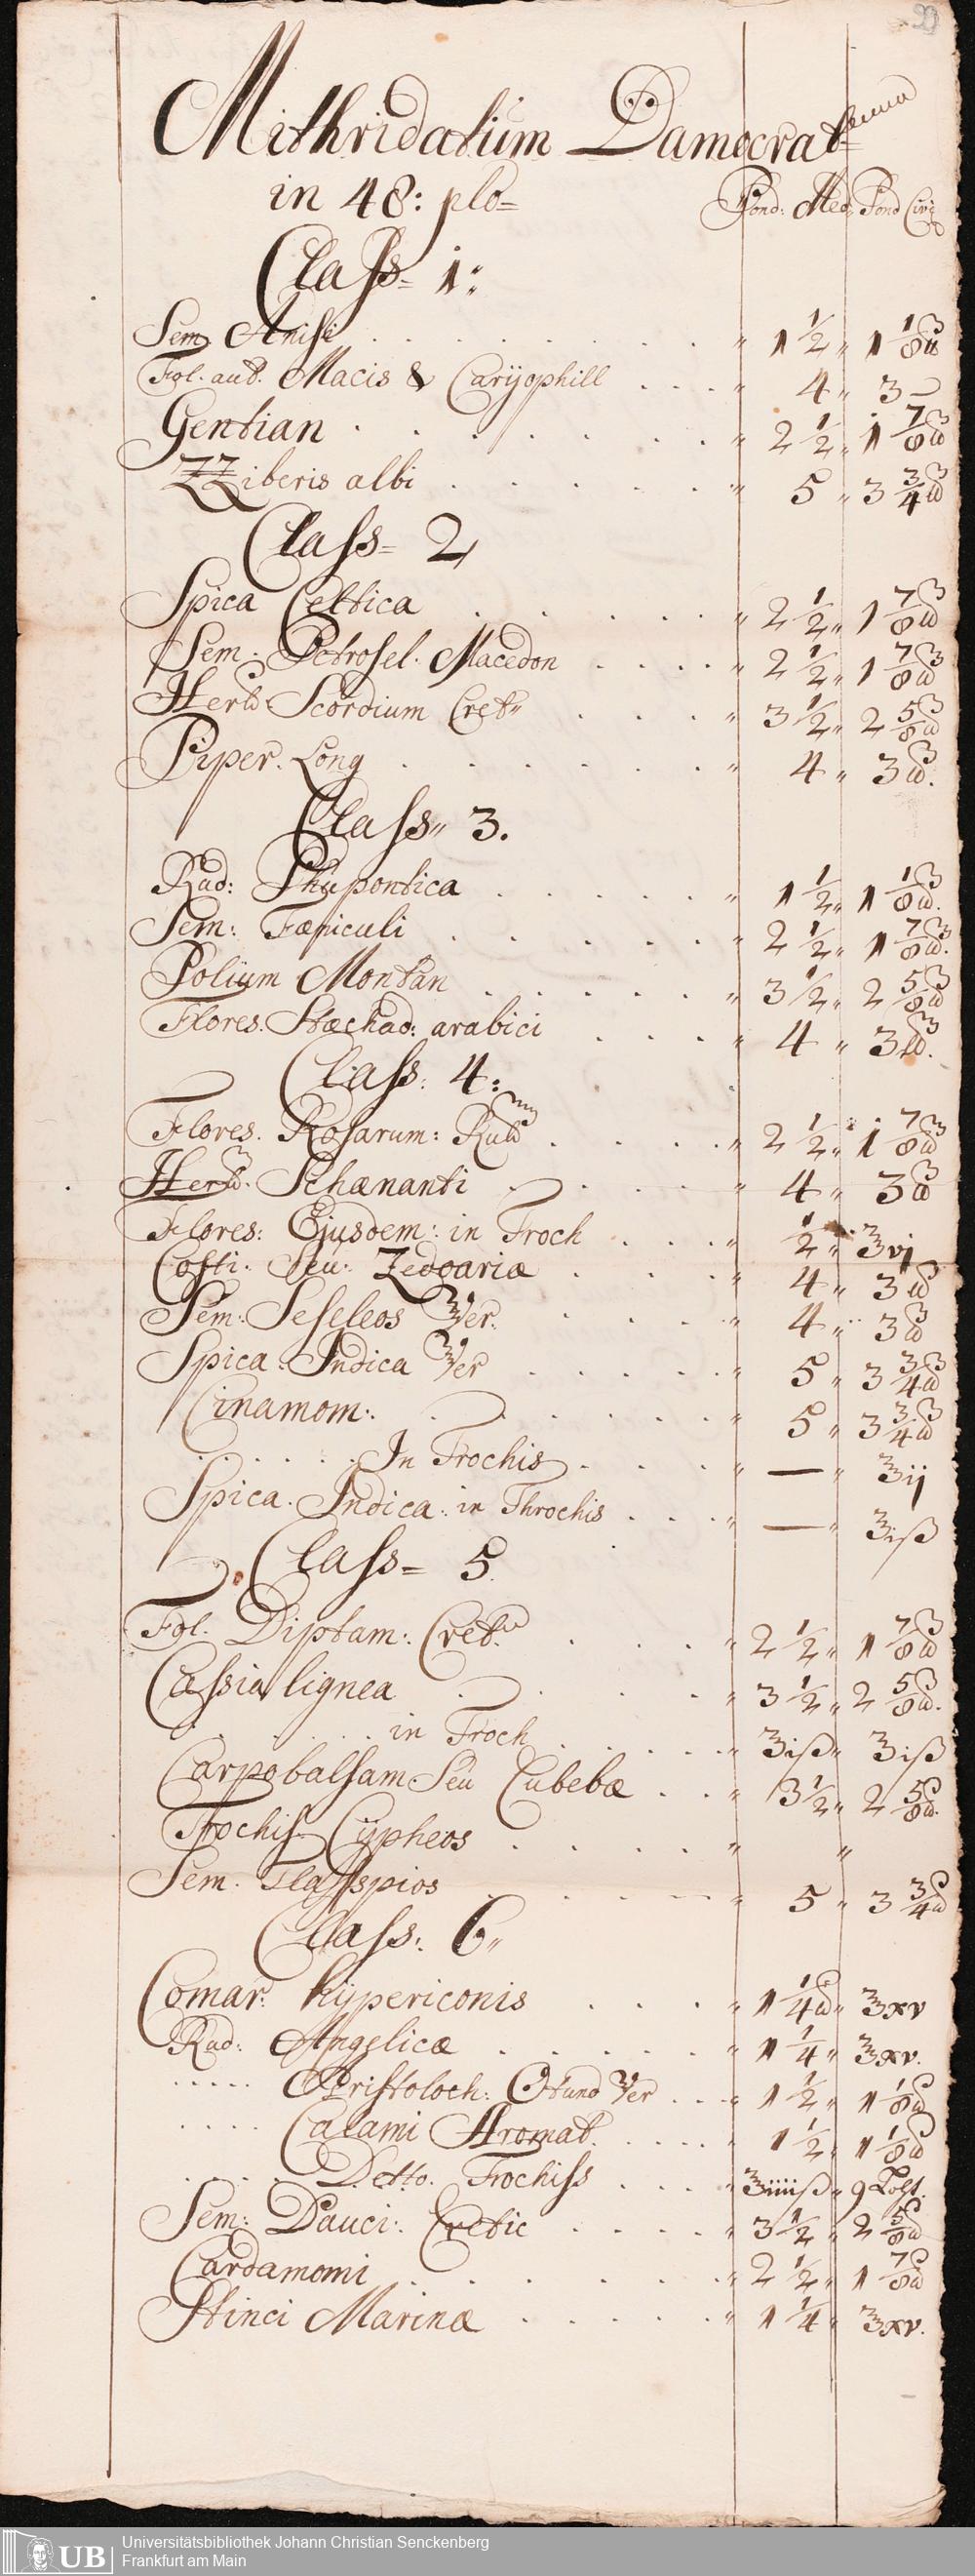 99
Mithridatium Damocrat=
in 48: plo= Pond: Med, Pond Civi
Class= 1:
Sem Anisi . . . . . . . " 1 1/2 " 1 1/8 ℔
Fol. aut. Macis & Carÿophill . . . " 4 " 3 —
Gentian . . . . . . . " 2 1/2 " 1 7/8 ℔
ZZiberis albi . . . . . . " 5 " 3 3/4 ℔
Class= 2
Spica Celtica . . . . . " 2 1/2 " 1 7/8 ℔
Sem. Petrosel. Macedon . . . . " 2 1/2 " 1 7/8 ℔
Herb Scordium Cret" . . . . " 3 1/2 " 2 5/8 ℔
Piper. Long . . . . . . . " 4 " 3 ℔.
Class" 3.
Rad: Rhüpontica . . . . . " 1 1/2 " 1 1/8 ℔.
Sem: Fæniculi . . . . . . " 2 1/2 " 1 7/8 ℔.
Polium Montan . . . . . " 3 1/2 " 2 5/8 ℔
Flores. Stæchad: arabici . . . " 4 " 3 ℔.
Class: 4:
Flores. Rosarum: Rub . . . . " 2 1/2 " 1 7/8 ℔
Herb. Schænanti . . . . " 4 " 3 ℔
Flores: Ejusdem: in Troch . . . " 1/2 " ℥vj
Costi. Seu. Zedoariæ . . . . " 4 " 3 ℔
Sem: Seseleos Ver. . . . . " 4 " 3 ℔
Spica. Indica Ver . . . . . " 5 " 3 3/4 ℔
Cinamom: . . . . . . " 5 " 3 3/4 ℔
. . . . . . In Trochis . . . . " — " ℥ij
Spica. Indica: in Throchis . . . " — " ℥iß
Class= 5.
Fol. Diptam: Cret: . . . " 2 1/2 " 1 7/8 ℔
Cassia lignea . . . . . " 3 1/2 " 2 5/8 ℔.
. . . . . in Troch . . . . . " ℥iß " ℥iß
Carpobalsam. Seu Cubebæ . . . " 3 1/2 " 2 5/8 ℔.
Trochis Cÿpheos . . . . . " "
Sem. Tlasspios . . . . " 5 " 3 3/4 ℔
Class: 6"
Comar: hÿpericonis . . . . " 1 1/4 ℔ " ℥xv
Rad: Angelicæ . . . . . . " 1 1/4 " ℥xv.
. . . . . Aristoloch: Ver . . . " 1 1/2 " 1 1/8 ℔
. . . . Calami Aromat. . . . . . " 1 1/2 " 1 1/8 ℔
. . . . Detto. Trochiss . . . . " ℥iiiiß " 9 Loht.
Sem: Dauci: Cretic . . . . . " 3 1/2 " 2 5/8 ℔
Cardamomi . . . . . . . " 2 1/2 " 1 7/8 ℔
Stinci Marinæ . . . . . " 1 1/4 " ℥xv.
UB Universitätsbibliothek Johann Christian Senckenberg
Frankfurt am Main